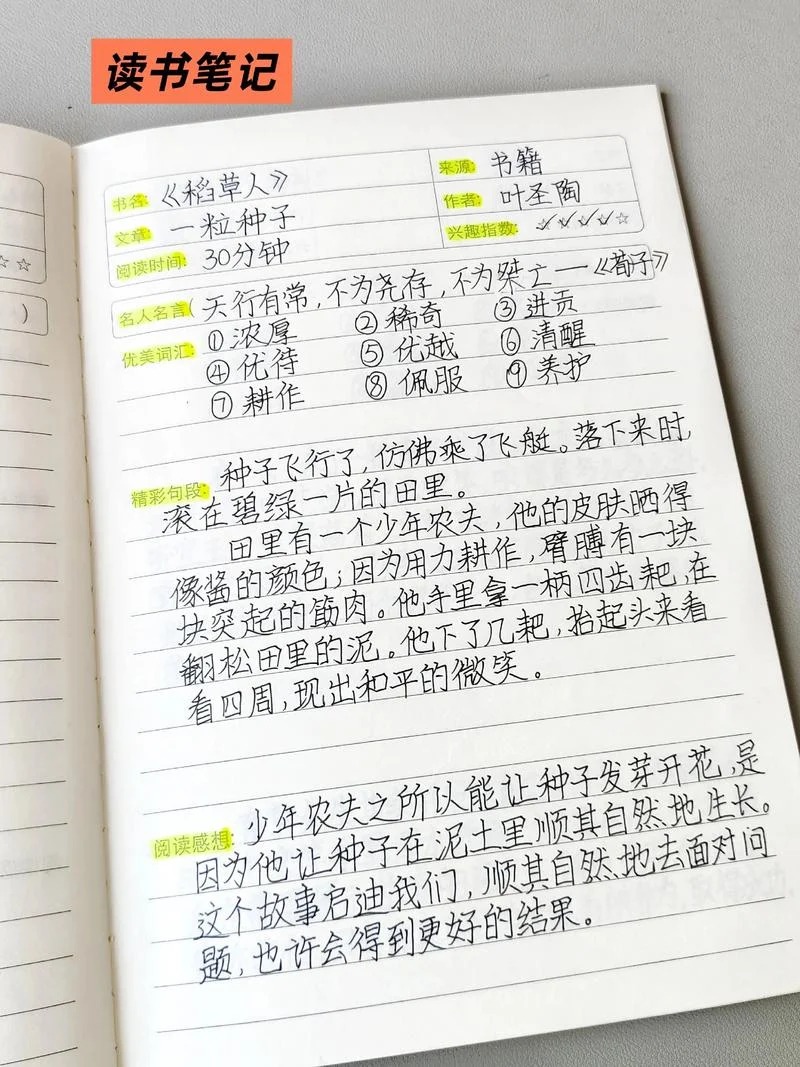 读书笔记
书名: 《稻草人》
来源: 书籍
文章: 一粒种子
作者: 叶圣陶
阅读时间: 30分钟
兴趣指数: ☆☆☆☆☆
名人名言( 天行有常,不为尧存,不为桀亡——《荀子》
优美词汇: ①浓厚 ②稀奇 ③进贡
④优待 ⑤优越 ⑥清醒
⑦耕作 ⑧佩服 ⑨养护
精彩句段: 种子飞行了,仿佛乘了飞艇。落下来时,
滚在碧绿一片的田里。
田里有一个少年农夫,他的皮肤晒得
像酱的颜色;因为用力耕作,臂膊有一块
块突起的筋肉。他手里拿一柄四齿耙,在
翻松田里的泥。他下了几耙,抬起头来看
看四周,现出和平的微笑。
阅读感想: 少年农夫之所以能让种子发芽开花,是
因为他让种子在泥土里顺其自然地生长。
这个故事启迪我们,顺其自然地去面对问
题,也许会得到更好的结果。
☆☆
)